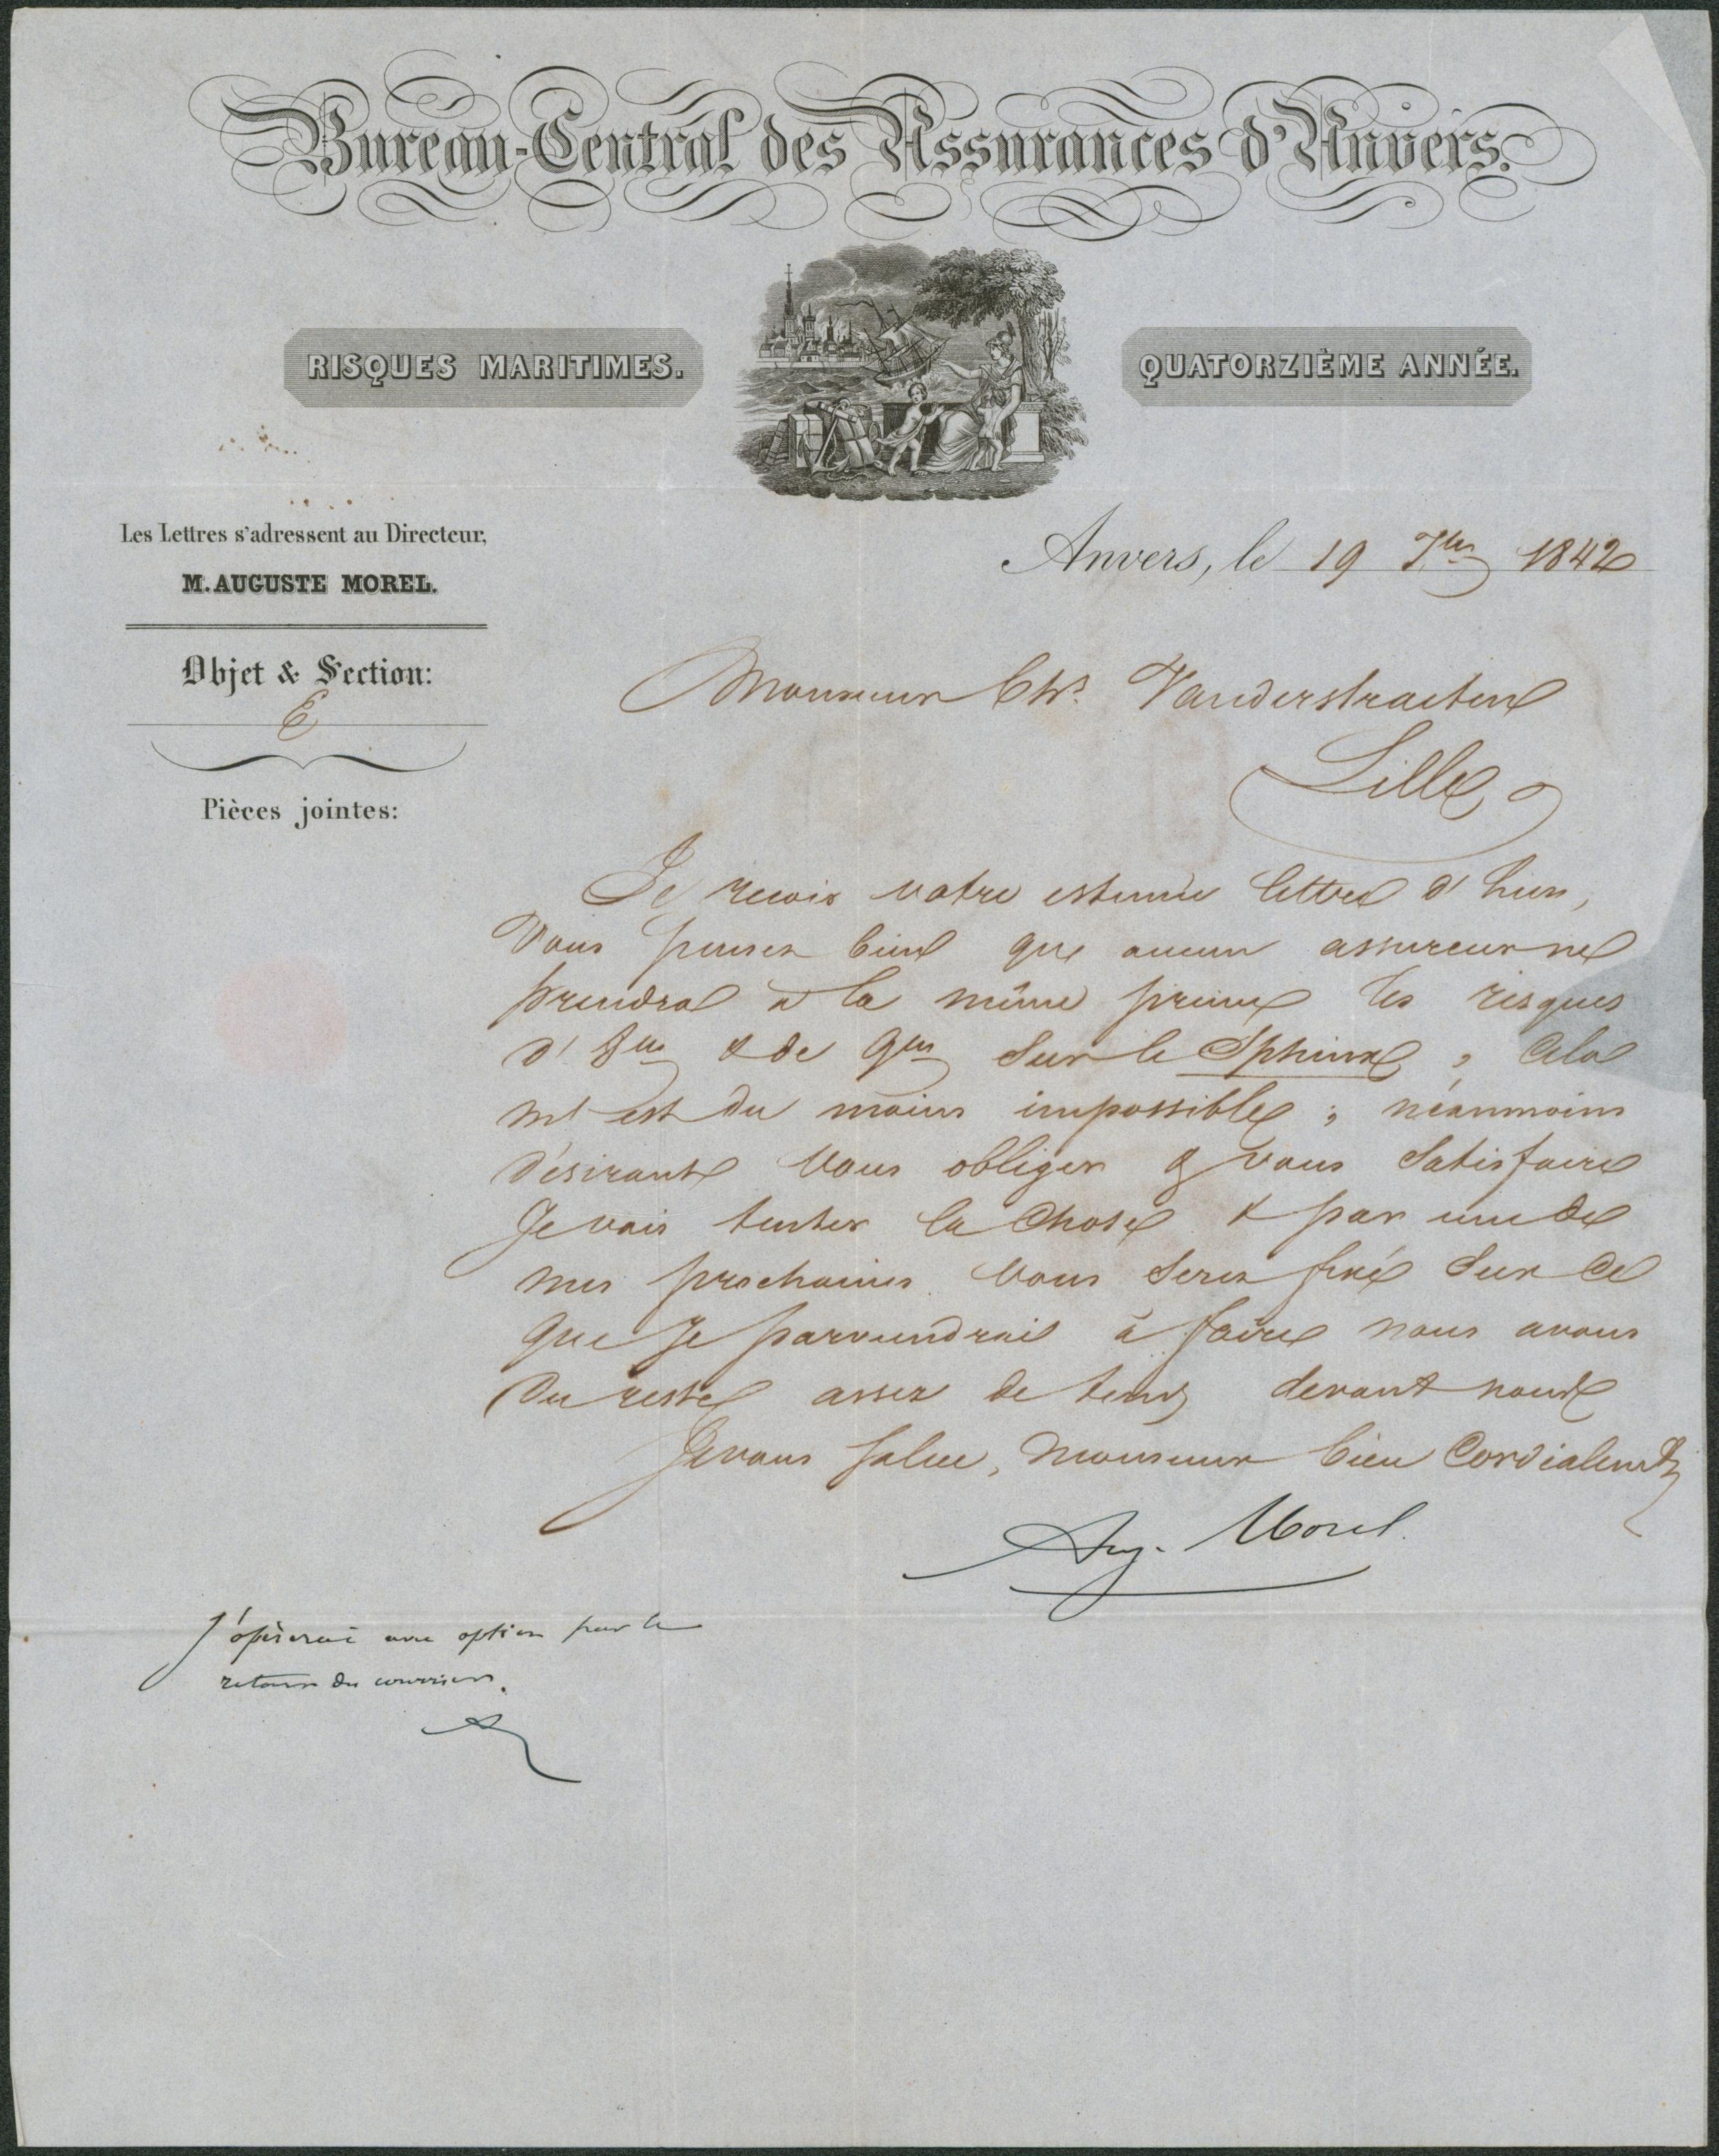 Bureau-Central des Assurances d'Anvers.
RISQUES MARITIMES.
QUATORZIÈME ANNÉE.
Les Lettres s'adressent au Directeur,
M. AUGUSTE MOREL.
Objet & Section:
E
Pièces jointes:
Anvers, le 19 7bre 1842
Monsieur Chs. Vanderstraeten
Lille
Je recois votre estimée lettre d'hier,
Vous pensez bien que aucun assureur ne
prendra à la même prime les risques
d' 8bre & de 9bre Sur le Sphinx, Cela
m'est du moins impossible; néanmoins
désirant vous obliger & vous Satisfaire
Je vais tenter la Chose & par une de
mes prochaines vous Serez fixé Sur Ce
que Je parviendrai à faire nous avons
Du reste assez de tems devant nous
Je vous Salue, Monsieur bien Cordialement
Aug. Morel.
J'opèrerai avec option pour le
retour du courrier.